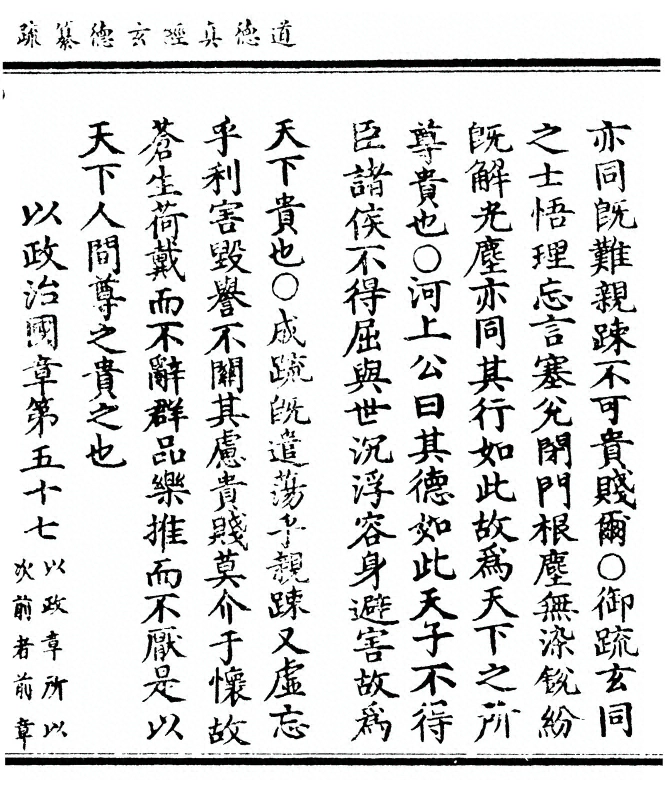 道德真經玄德纂疏
亦同旣難親踈不可貴賤爾〇御疏玄同
之士悟理忘言塞兊閉門根塵無染銳紛
旣解光塵亦同其行如此故爲天下之所
尊貴也〇河上公曰其德如此天子不得
臣諸侯不得屈與世沉浮容身避害故爲
天下貴也〇成疏旣遣蕩乎親踈又虛忘
乎利害毀譽不關其慮貴賤莫介于懷故
蒼生荷戴而不辭群品樂推而不厭是以
天下人間尊之貴之也
以政治國章第五十七
以政章所以
次前者前章